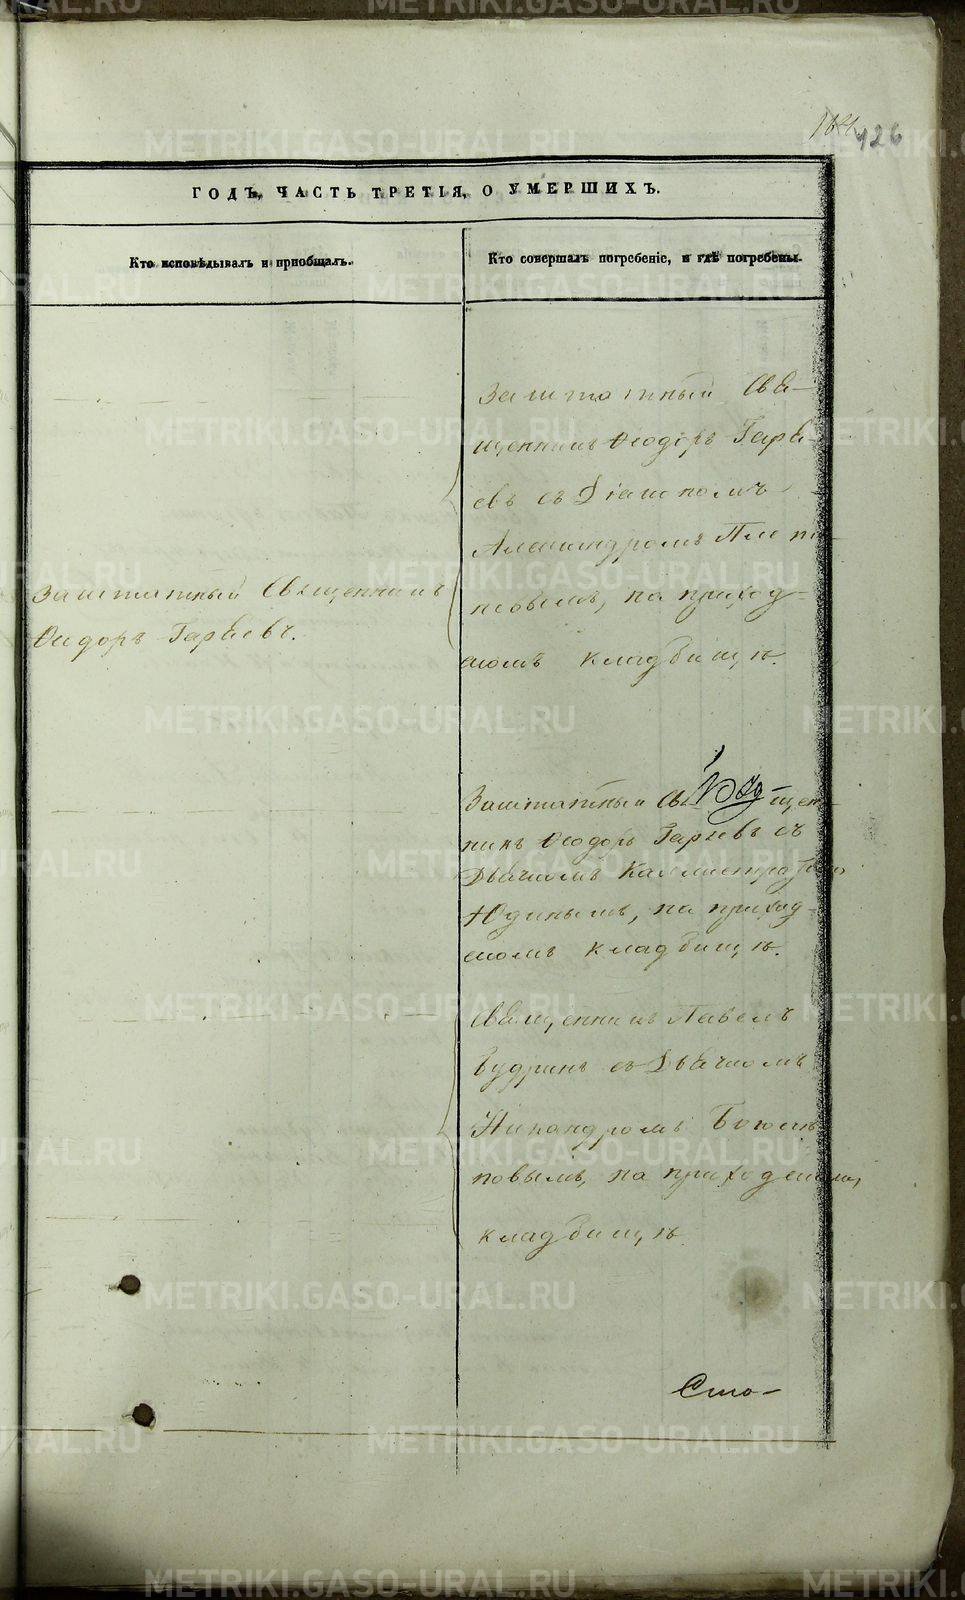 126
ГОДЪ, ЧАСТЬ ТРЕТІЯ, О УМЕРШИХЪ.
Кто исповѣдывалъ и пріобщалъ.
Кто совершалъ погребеніе, и гдѣ погребены.
Заштатный Священникъ
Ѳеодоръ Гаряевъ.
Заштатный Свя-
щенникъ Ѳеодоръ Гаря-
евъ съ
Александромъ
на приход-
скомъ кладбищѣ.
Заштатный Священ-
никъ Ѳеодоръ Гаряевъ съ
Дьячкомъ Каллистратомъ
Юдинымъ, на приход-
скомъ кладбищѣ.
Священникъ Павелъ
Будринъ съ Дьячкомъ
Никандромъ
на приходскомъ
кладбищѣ
Сто-
METRIKI.GASO-URAL.RU